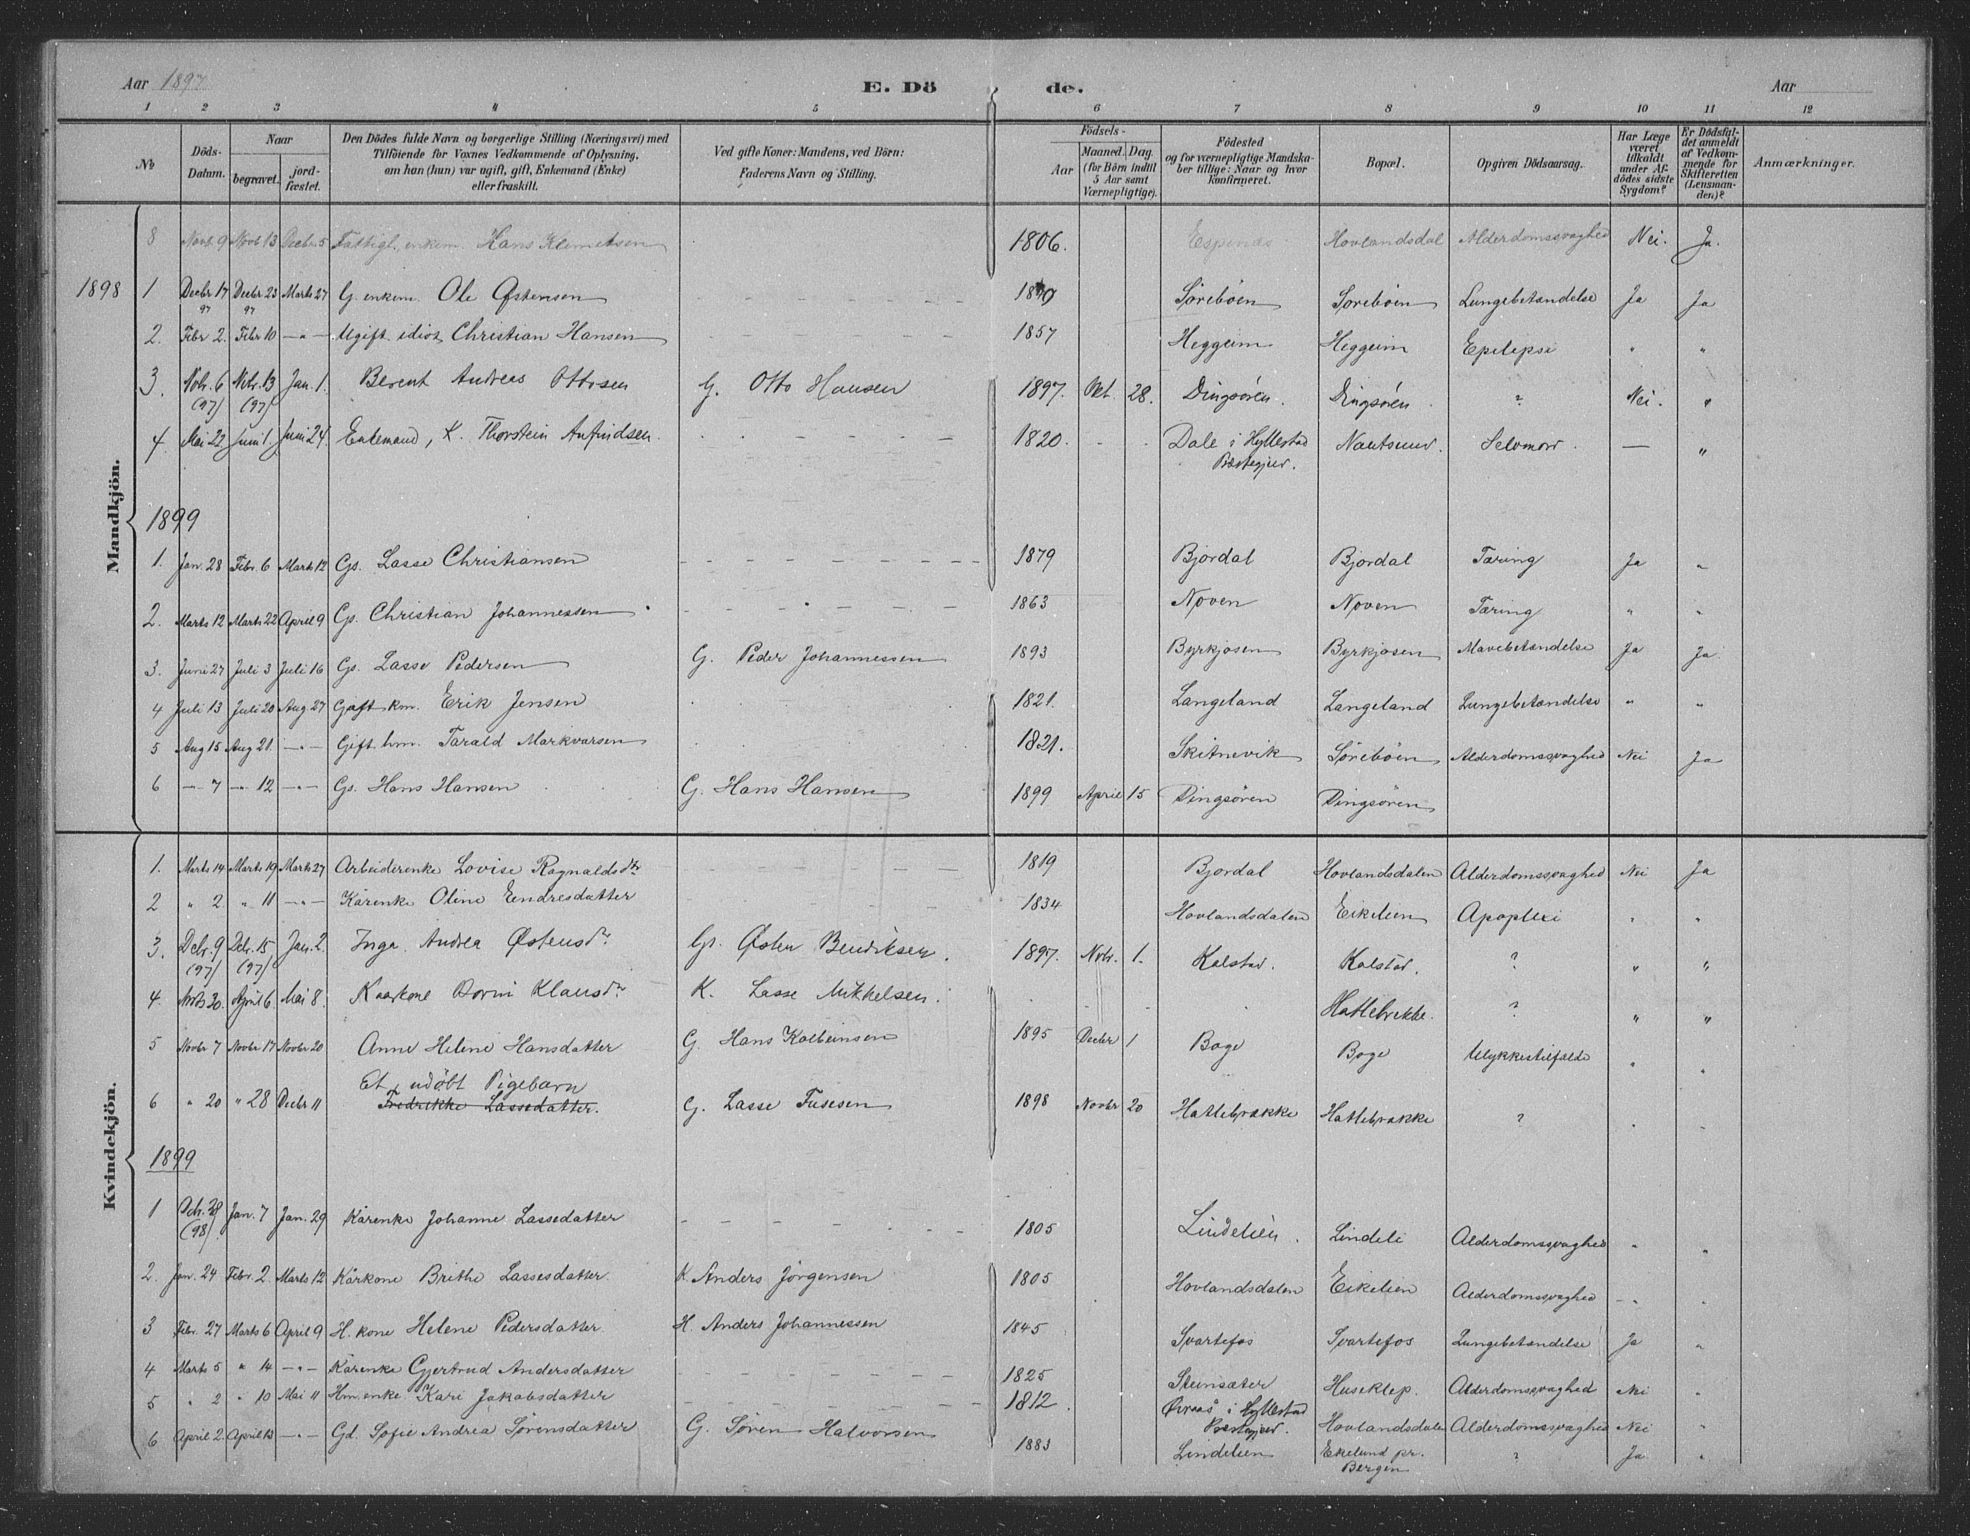 Aar 1897 E. Dö de. Aar
1 2 3 4 5 6 7 8 9 10 11 12
No
Döds-Datum.
Naar
begravet.
jord-fæstet.
Den Dödes fulde Navn og borgerlige Stilling (Næringsvei) med
Tilföiende for Voxnes Vedkommende af Oplysning,
om han (hun) var ugift, gift, Enkemand (Enke)
eller fraskilt.
Ved gifte Koner: Mandens, ved Börn:
Faderens Navn og Stilling.
Födsels-
Aar
Maaned. Dag.
(for Börn indtil
5 Aar samt
Værnepligtige).
Födested
og for værnepligtige Mandska-
ber tillige: Naar og hvor
konfirmeret.
Bopæl.
Opgiven Dödsaarsag.
Har Læge
været
tilkaldt
under Af-
dödes sidste
Sygdom?
Er Dödsfal-
det anmeldt
af Vedkom-
mende for
Skifteretten
(Lensman-
den)?
Anmærkninger.
Mandkjön.
8 Novb. 9 Novb 13 Decbr. 5 Fattigl. enkem. Hans Klemetsen 1806. Espenæs Hovlandsdal Alderdomssvaghed Nei. Ja.
1898 1 Decbr 17 97 Decbr 23 97 Marts 27 G. enkem. Ole Østensen Söreböen Söreböen Lungebetændelse Ja Ja
2. Febr 2. Febr 10 —"— Ugift idiot, Christian Hansen 1857 Heggeim Heggeim Epilepsi " "
3. Nobr. 6 (97) Nobr. 13 (97) Jan. 1. Berent Andreas Ottosen G. Otto Hansen 1897. Okt. 28. Dingsören. Dingsören. ? Nei. "
4 Mai 22 Juni 1. Juni 24. Enkemand, K. Thorstein Anfindsen. 1820. Dale i Hyllestad Præstegjeld. Nautsund. Selvmord. — "
1899
1. Jan. 28 Febr. 6 Marts 12 Gs. Lasse Christiansen 1879 Bjordal Bjordal Tæring Ja "
2. Marts 12 Marts 22 April 9 Gs. Christian Johannessen 1863 Noven Noven Tæring " "
3. Juni 27 Juli 3 Juli 16 Gs. Lasse Pedersen G. Peder Johannessen 1893 Byrkjosen Byrkjosen Mavebetændelse Ja Ja
4 Juli 13 Juli 20 Aug 27 Gift km. Erik Jensen 1821. Langeland Langeland Lungebetændelse " "
5 Aug 15 Aug 21. —"— Gift hm. Tarald Markvarsen 1821. Skitnevik Söreböen Alderdomssvaghed Nei Ja
6 —"— 7 —"— 12 —"— Gs. Hans Hansen G. Hans Hansen 1899 April 15 Dingsören Dingsören
Kvindekjön.
1. Marts 14 Marts 19 Marts 27 Arbeiderenke Lovise Ragnaldsdtr 1819 Bjordal Hovlandsdalen Alderdomssvaghed Nei Ja
2 " 2 " 11 —"— Kårenke Oline Eendresdatter 1834 Hovlandsdalen Eikelien Apoplexi " "
3. Debr. 9 (97) Debr. 15 (97) Jan. 2. Inga Andrea Østensdr Gs. Østen Bendiksen. 1897. Nobr. 1. Kalstad. Kalstad. ? " "
4. Marts 30. April 6 Mai 8. Kaarkone Dorni Klausdr K. Lasse Mikkelsen. Hattebrekke. ? " "
5 Novbr 7 Novbr 17 Novbr 20 Anne Helene Hansdatter G. Hans Kolbeinsen 1895 Decbr 1 Boge Boge Ulykkestilfælde " "
Et udöbt Pigebarn
6 " 20 " 28 Decbr 11 Fredrikke Lassedatter. G. Lasse Tusesen 1898 Novbr 20 Hattebrække Hattebrække ? " "
1899
1 Dcbr. 28 (98) Jan. 7 Jan. 29 Kårenke Johanne Lassedatter 1805 Lindelien. Lindeli Alderdomssvaghed " "
2. Jan. 24 Febr. 2 Marts 12 Kårkone Brithe Lassesdatter. K. Anders Jörgensen 1805 Hovlandsdalen Eikelien Alderdomssvaghed —"— "
3 Febr. 27 Marts 6 April 9 H. kone Helene Pedersdatter. H. Anders Johannessen 1845 Svartefos Svartefos Lungebetændelse Ja "
4 Marts 5 " 14 —"— Kårenke Gjertrud Andersdatter 1825 Steinsæter Huseklep. Alderdomssvaghed Nei "
5 " 2 " 10 Mai 11 Hm. enke Kari Jakobsdatter 1812. i Hyllestad Præstegjeld. Hovlandsdalen Alderdomssvaghed Nei "
6 April 2. April 13 —"— Gd. Sofie Andrea Sörensdatter G. Sören Halvorsen 1883 Lindelien Eikelund pr. Bergen ? Ja "